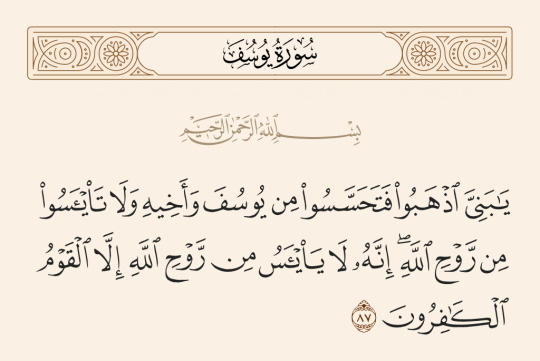 سُورَةُ يُوسُفَ
بِسْمِ اللَّهِ الرَّحْمَٰنِ الرَّحِيمِ
يَٰبَنِىَّ ٱذْهَبُوا۟ فَتَحَسَّسُوا۟ مِن يُوسُفَ وَأَخِيهِ وَلَا تَا۟يْـَٔسُوا۟
مِن رَّوْحِ ٱللَّهِ ۖ إِنَّهُۥ لَا يَا۟يْـَٔسُ مِن رَّوْحِ ٱللَّهِ إِلَّا ٱلْقَوْمُ
ٱلْكَٰفِرُونَ ٨٧